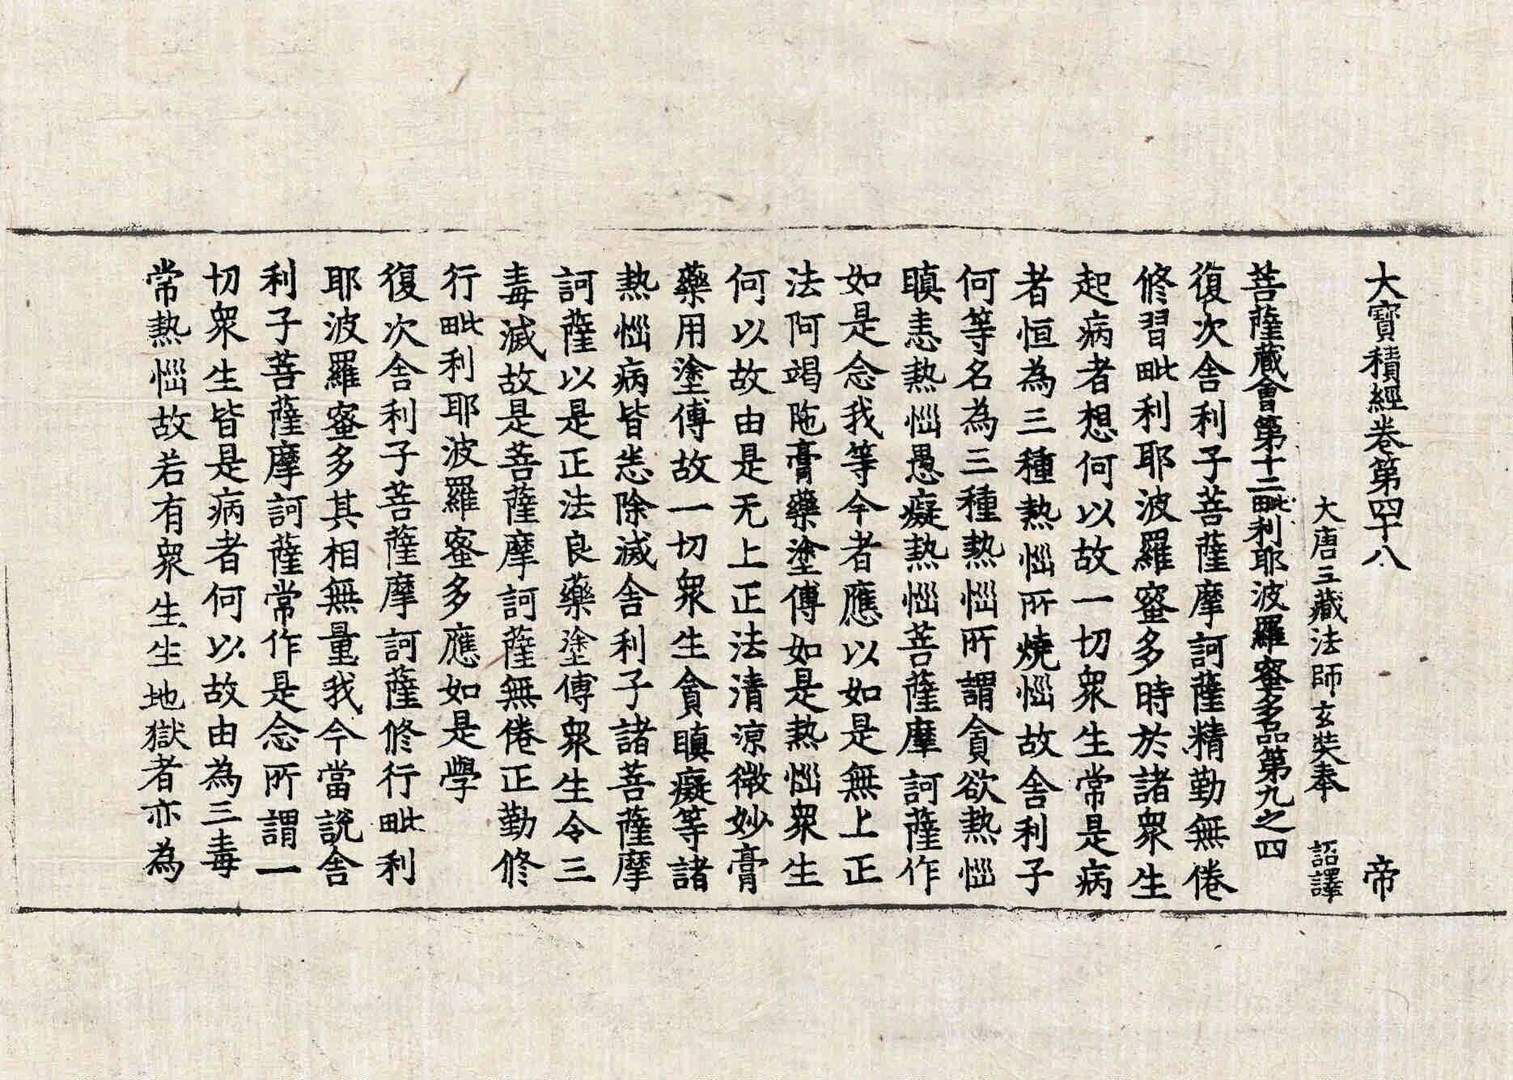 大寶積經卷第四十八　帝
大唐三藏法師玄奘奉　詔譯
菩薩藏會第十二毗利耶波羅蜜多品第九之四
復次舍利子菩薩摩訶薩精勤無倦
修習毗利耶波羅蜜多時於諸衆生
起病者想何以故一切衆生常是病
者恒為三種熱惱所燒惱故舍利子
何等名為三種熱惱所謂貪欲熱惱
瞋恚熱惱愚癡熱惱菩薩摩訶薩作
如是念我等今者應以如是無上正
法阿竭陁膏藥塗傅如是熱惱衆生
何以故由是无上正法清涼微妙膏
藥用塗傅故一切衆生貪瞋癡等諸
熱惱病皆悉除滅舍利子諸菩薩摩
訶薩以是正法良藥塗傅衆生令三
毒滅故是菩薩摩訶薩無倦正勤修
行毗利耶波羅蜜多應如是學
復次舍利子菩薩摩訶薩修行毗利
耶波羅蜜多其相無量我今當說舍
利子菩薩摩訶薩常作是念所謂一
切衆生皆是病者何以故由為三毒
常熱惱故若有衆生生地獄者亦為